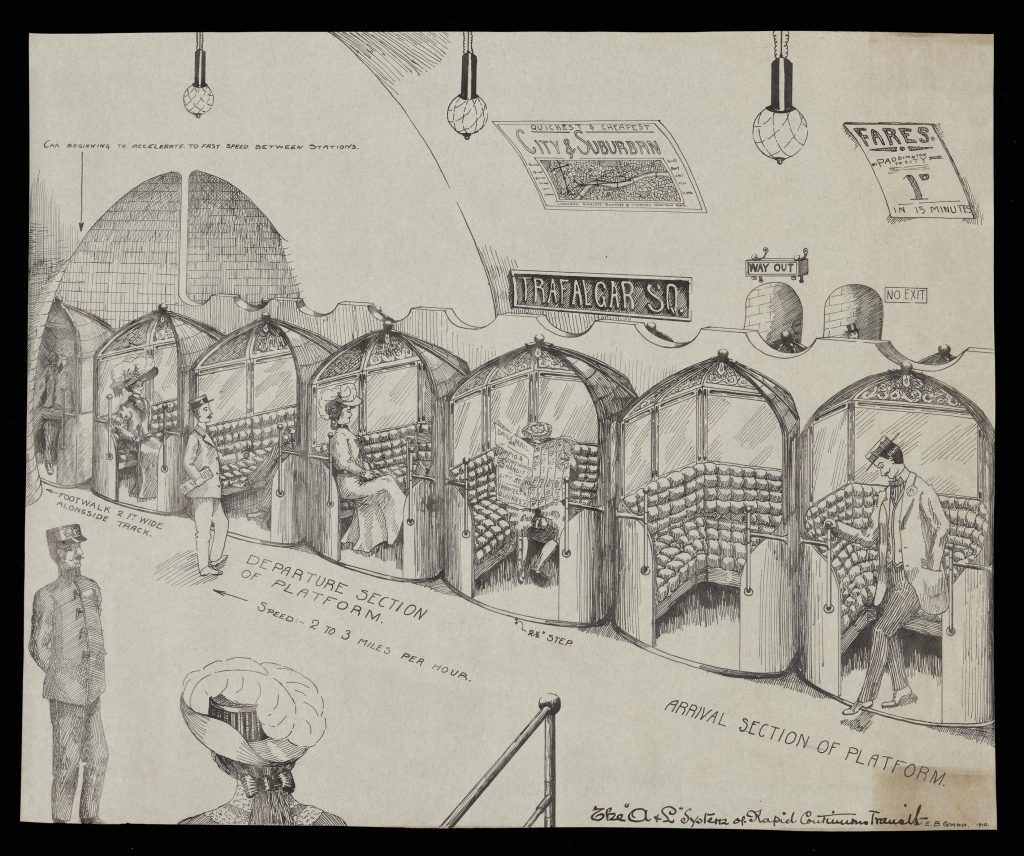 CAR BEGINNING TO ACCELERATE TO FAST SPEED BETWEEN STATIONS.
QUICKEST & CHEAPEST
CITY & SUBURBAN
FARES.
PADDINGTON
TO CITY
1D
IN 15 MINUTES
TRAFALGAR SQ.
WAY OUT
NO EXIT
FOOTWALK 2 FT WIDE
ALONGSIDE TRACK.
DEPARTURE SECTION
OF PLATFORM.
SPEED:- 2 TO 3 MILES PER HOUR.
2½" STEP.
ARRIVAL SECTION OF PLATFORM.
The "A & L" System of Rapid Continuous Transit
1910.